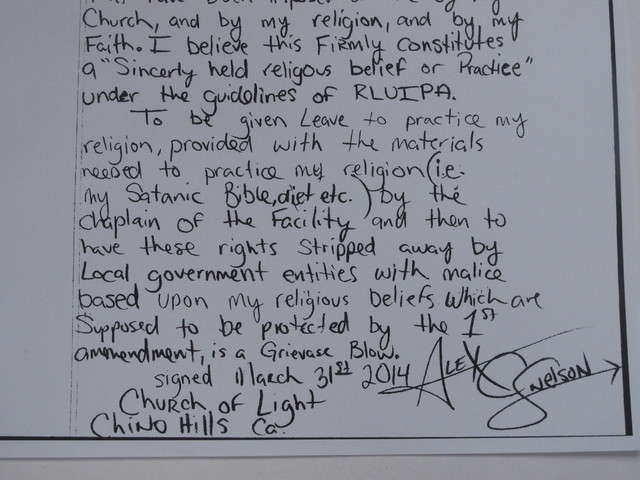 have been imposed
Church, and by my religion, and by my
Faith. I believe this Firmly constitutes
a "Sincerly held religous belief or Practice"
under the guidelines of RLUIPA.
To be given Leave to practice my
religion, provided with the materials
needed to practice my religion (i.e.
my Satanic Bible, diet etc.) by the
Chaplain of the Facility and then to
have these rights stripped away by
Local government entities with malice
based upon my religious beliefs which are
Supposed to be protected by the 1st
ammendment, is a Grievase Blow.
signed March 31st 2014 Alex Snelson
Church of Light
Chino Hills Ca.